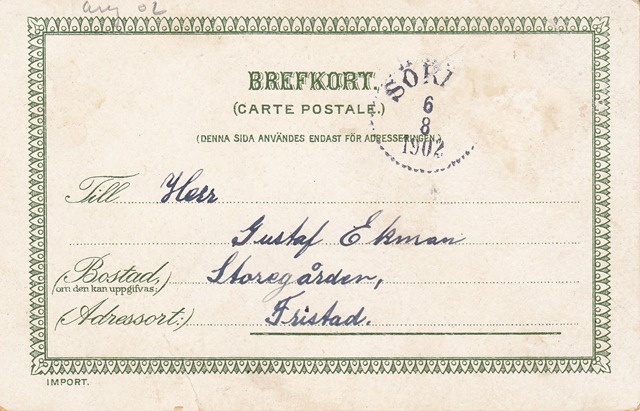 aug 02
BREFKORT.
(CARTE POSTALE.)
(DENNA SIDA ANVÄNDES ENDAST FÖR ADRESSERINGEN.)
SÖRY
6
8
1902
Till Herr
Gustaf Ekman
(Bostad,) Storegården,
(om den kan uppgifvas:)
(Adressort:) Fristad.
IMPORT.